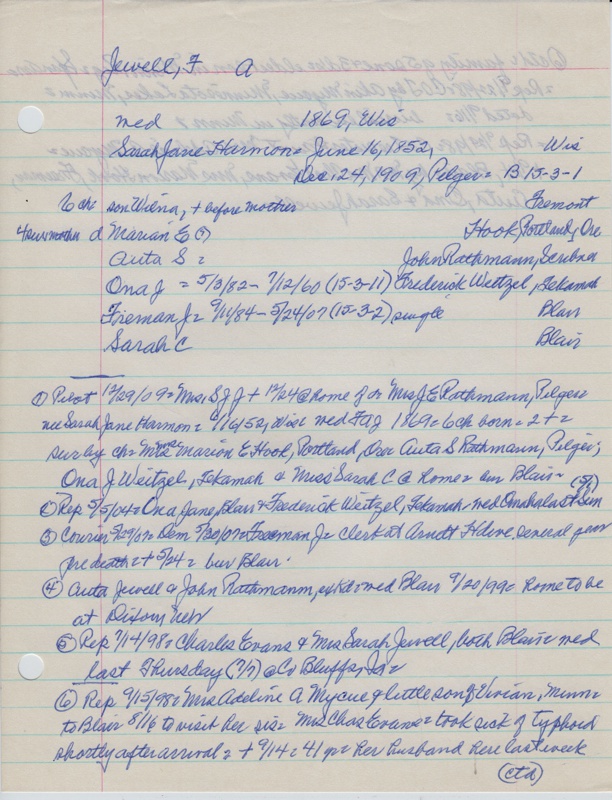 Jewell, F A
med 1869, Wis
Sarah Jane Harmon = June 16, 1852, Wis
Dec. 24, 1909, Pelger = B 15-3-1
6 chi son Wilna, + before mother Fremont
4 surv mother d Marian E (?) Hook, Portland, Ore
Auta S = John Rathmann, Scribner
Ona J = 5/3/82 - 7/12/60 (15-3-11) Frederick Weitzel, Tekamah
Freman J = 9/11/84 - 5/24/07 (15-3-2) single Blair
Sarah C Blair
① Pilot 12/29/09 = Mrs. S J J + 12/24 @ home of dr Mrs J E Rathmann, Pilger
nee Sarah Jane Harmon = 6/16/52, Wis = med FAJ 1869 = 6 ch born = 2 + =
surv by ch = Marion E Hook, Portland, Ore Auta S Rathmann, Pilger;
Ona J Weitzel, Tekamah & Miss Sarah C @ home = bur Blair =
② Rep 5/5/04 = Ona Jane, Blair & Frederick Weitzel, Tekamah = med Omaha last Sun (5/1)
③ Courier 5/29/07 = Dem 5/30/07 = Freeman J = clerk at Arndt Hdwe several years
pre death = + 5/24 = bur Blair.
④ Auta Jewell & John Rathmann, = med Blair 9/20/99 = home to be
at Dixon, New
⑤ Rep 7/14/98 = Charles Evans & Mrs Sarah Jewell, both Blair = med
last Thursday (7/7) @ Co Bluffs, Ia =
⑥ Rep 9/15/98 = Mrs Adeline A Mycue & little son Vivian, Minn =
to Blair 8/16 to visit her sis = Mrs Chas Evans = took sick of typhoid
shortly after arrival = + 9/14 = 41 yr = her husband here last week
(ctd)